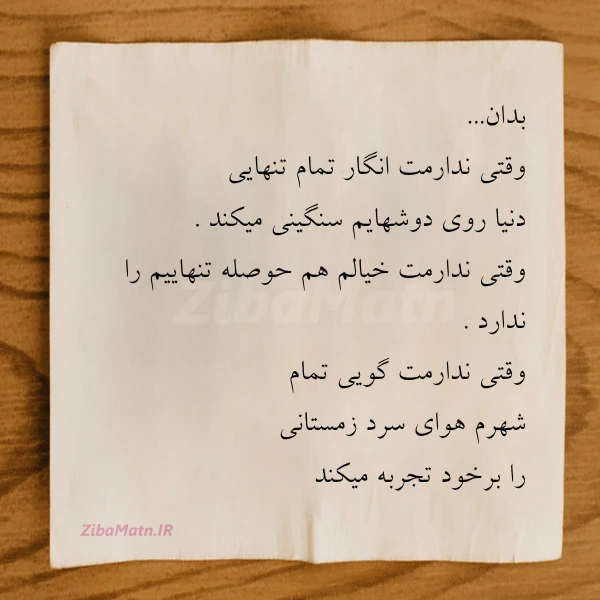 بدان...
وقتی ندارمت انگار تمام تنهایی
دنیا روی دوشهایم سنگینی میکند .
وقتی ندارمت خیالم هم حوصله تنهاییم را
ندارد .
وقتی ندارمت گویی تمام
شهرم هوای سرد زمستانی
را برخود تجربه میکند
ZibaMatn
ZibaMatn.IR